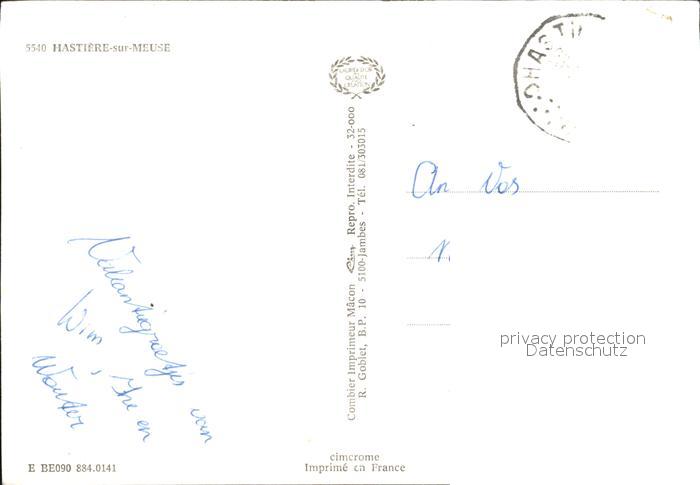 5540 HASTIÈRE-sur-MEUSE
LAURIER D'OR
DE
QUALITÉ
CRÉATION
HASTI
Combier Imprimeur Mâcon Cim Repro. Interdite - 32-000
R. Goblet, B.P. 10 - 5100-Jambes - Tél. 081/303015
An Vos
Vakantiegroetjes van
Wim, Ine en
Wouter
privacy protection
Datenschutz
E BE090 884.0141
cimcrome
Imprimé en France